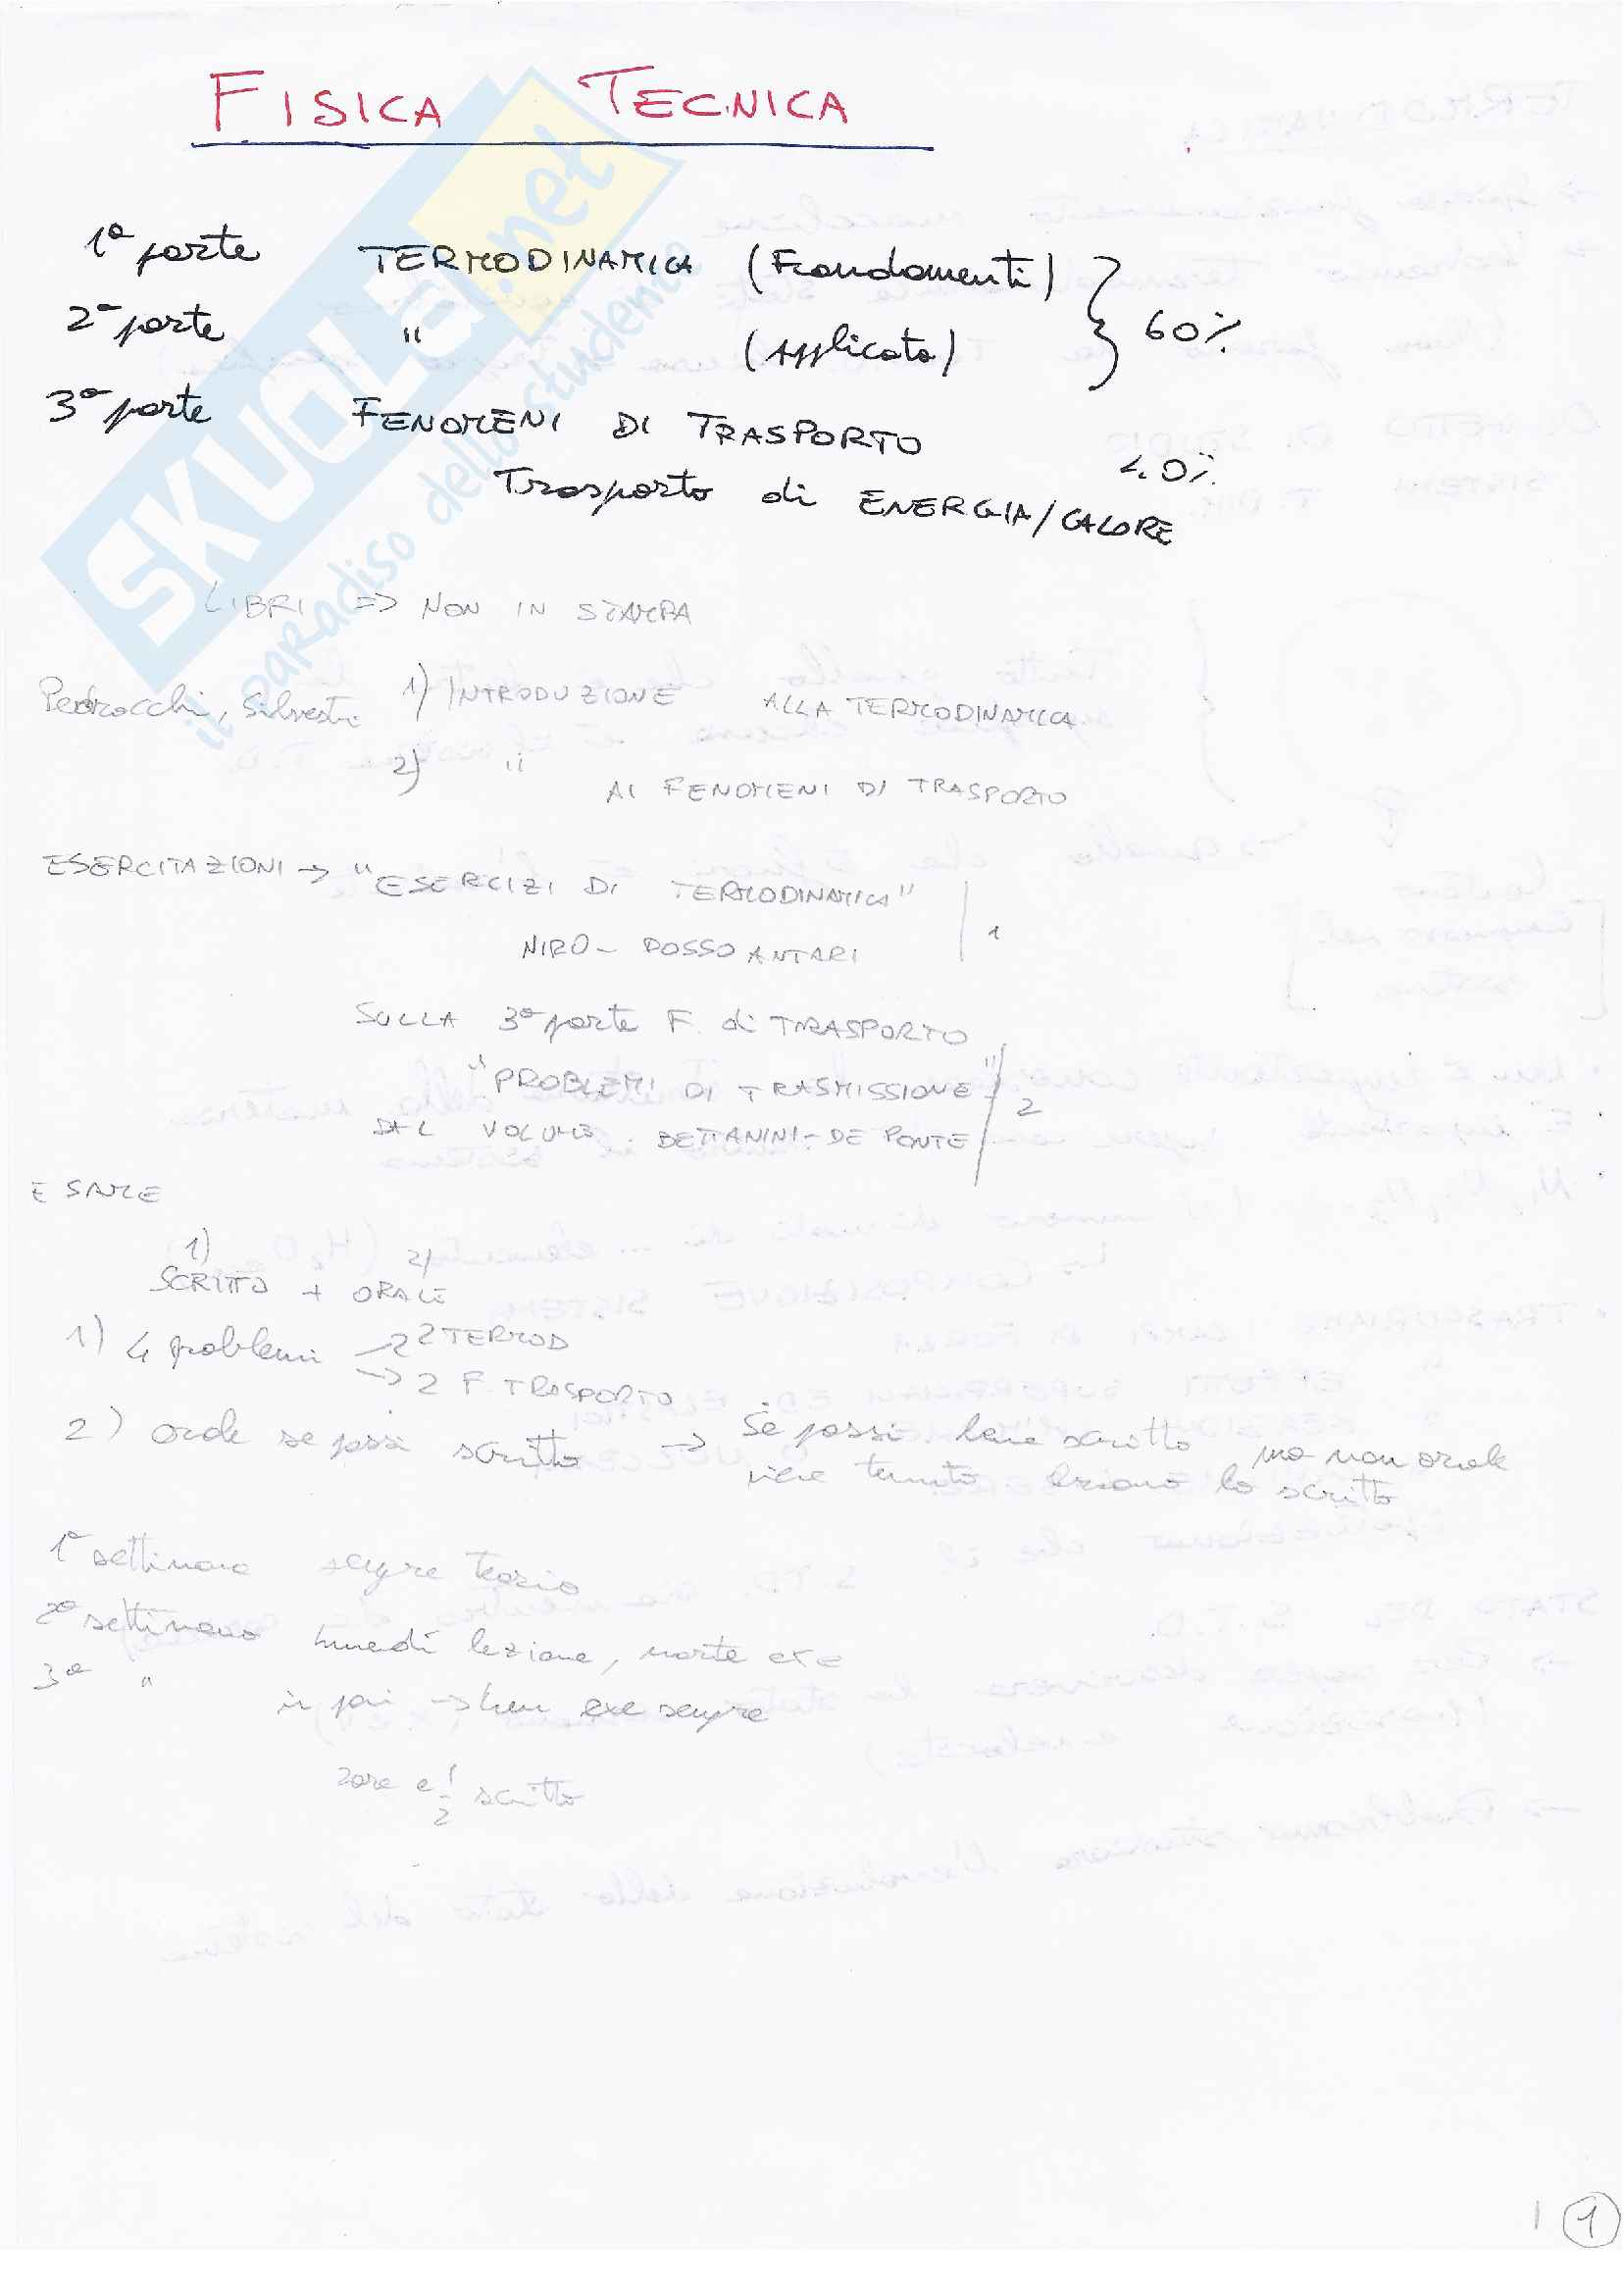 FISICA TECNICA
1ª parte TERMODINAMICA (Fondamenti)
2ª parte " (Applicata) } 60%
3ª parte FENOMENI DI TRASPORTO
Trasporto di ENERGIA/CALORE 40%
LIBRI => NON IN STAMPA
Pedrocchi, Silvestri 1) INTRODUZIONE ALLA TERMODINAMICA
2) " AI FENOMENI DI TRASPORTO
ESERCITAZIONI → "ESERCIZI DI TERMODINAMICA"
NIRO - DOSSO ANTARI | 1
SULLA 3ª parte F. di TRASPORTO
"PROBLEMI DI TRASMISSIONE"
DEL VOLUME. BETTANINI - DE PONTE | 2
ESAME
1) 2)
SCRITTO + ORALE
1) 4 problemi → 2 TERMOD
→ 2 F. TRASPORTO
2) Orale se passi scritto → Se passi bene scritto ma non orale
viene tenuto lo scritto
1ª settimana sempre teoria
2ª settimana lunedì lezione, marte exe
3ª " in poi → exe sempre
2 ore e 1/2 scritto
1 1
SKUOLA.net
il paradiso dello studente